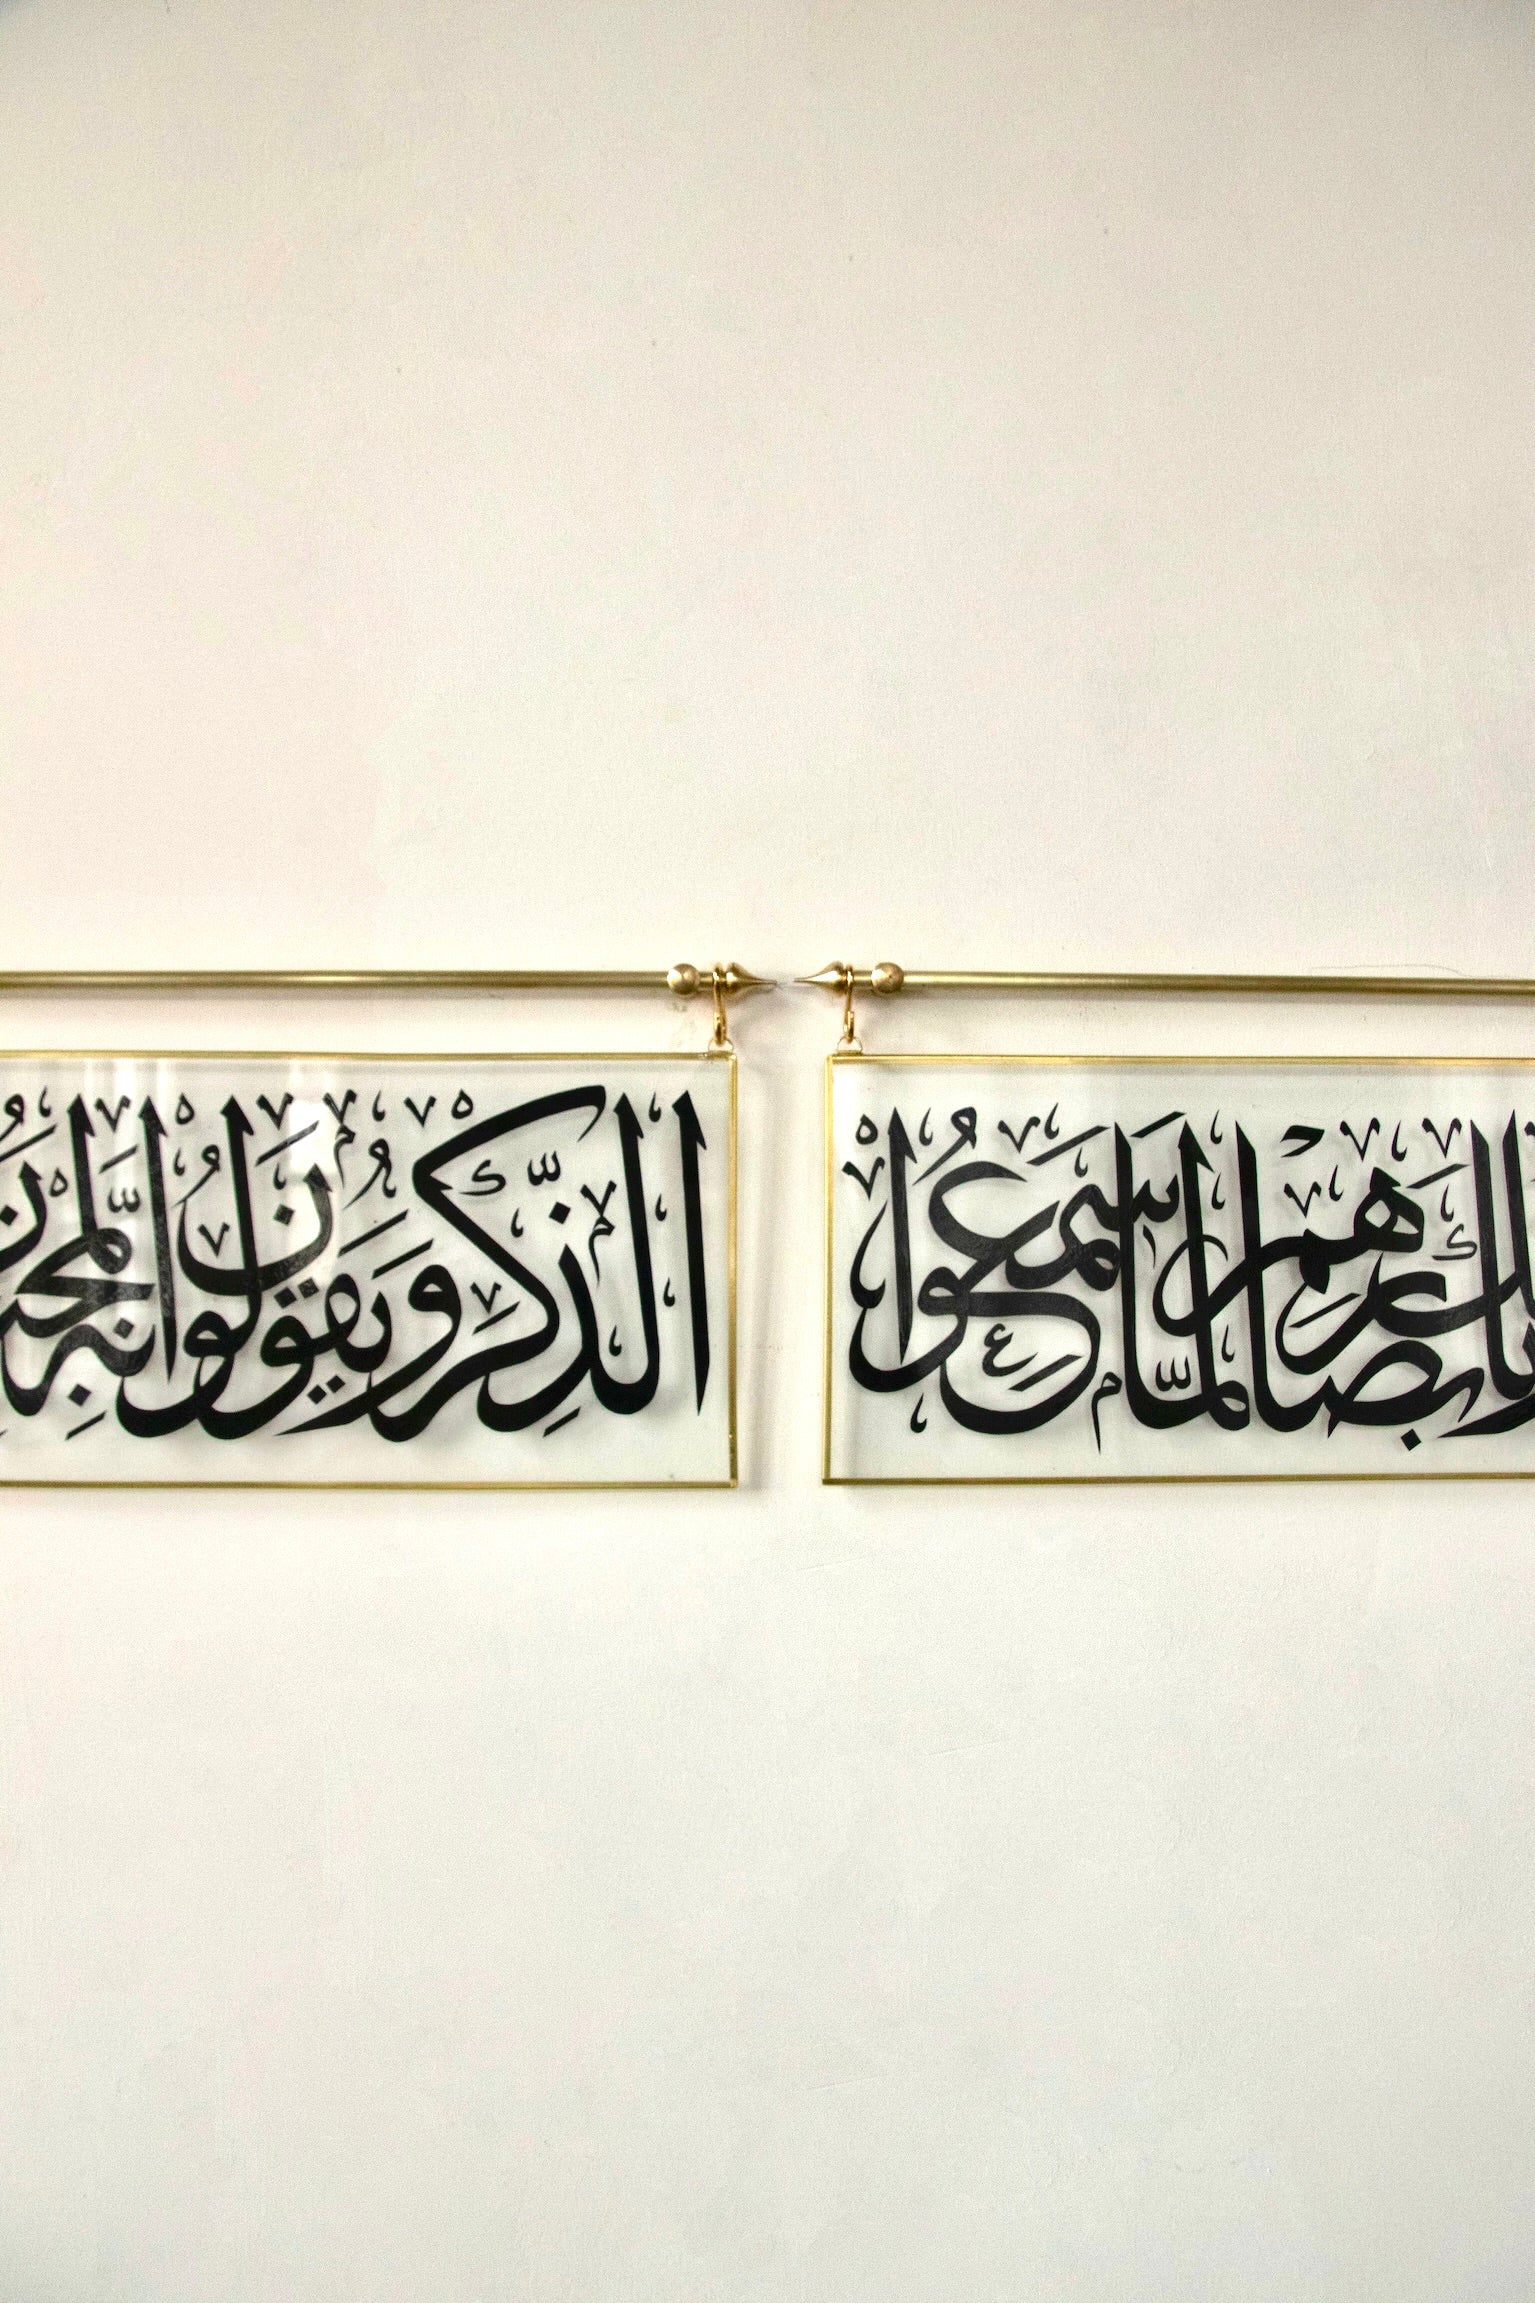 بِأَبْصَارِهِمْ لَمَّا سَمِعُوا
الذِّكْرَ وَيَقُولُونَ إِنَّهُ